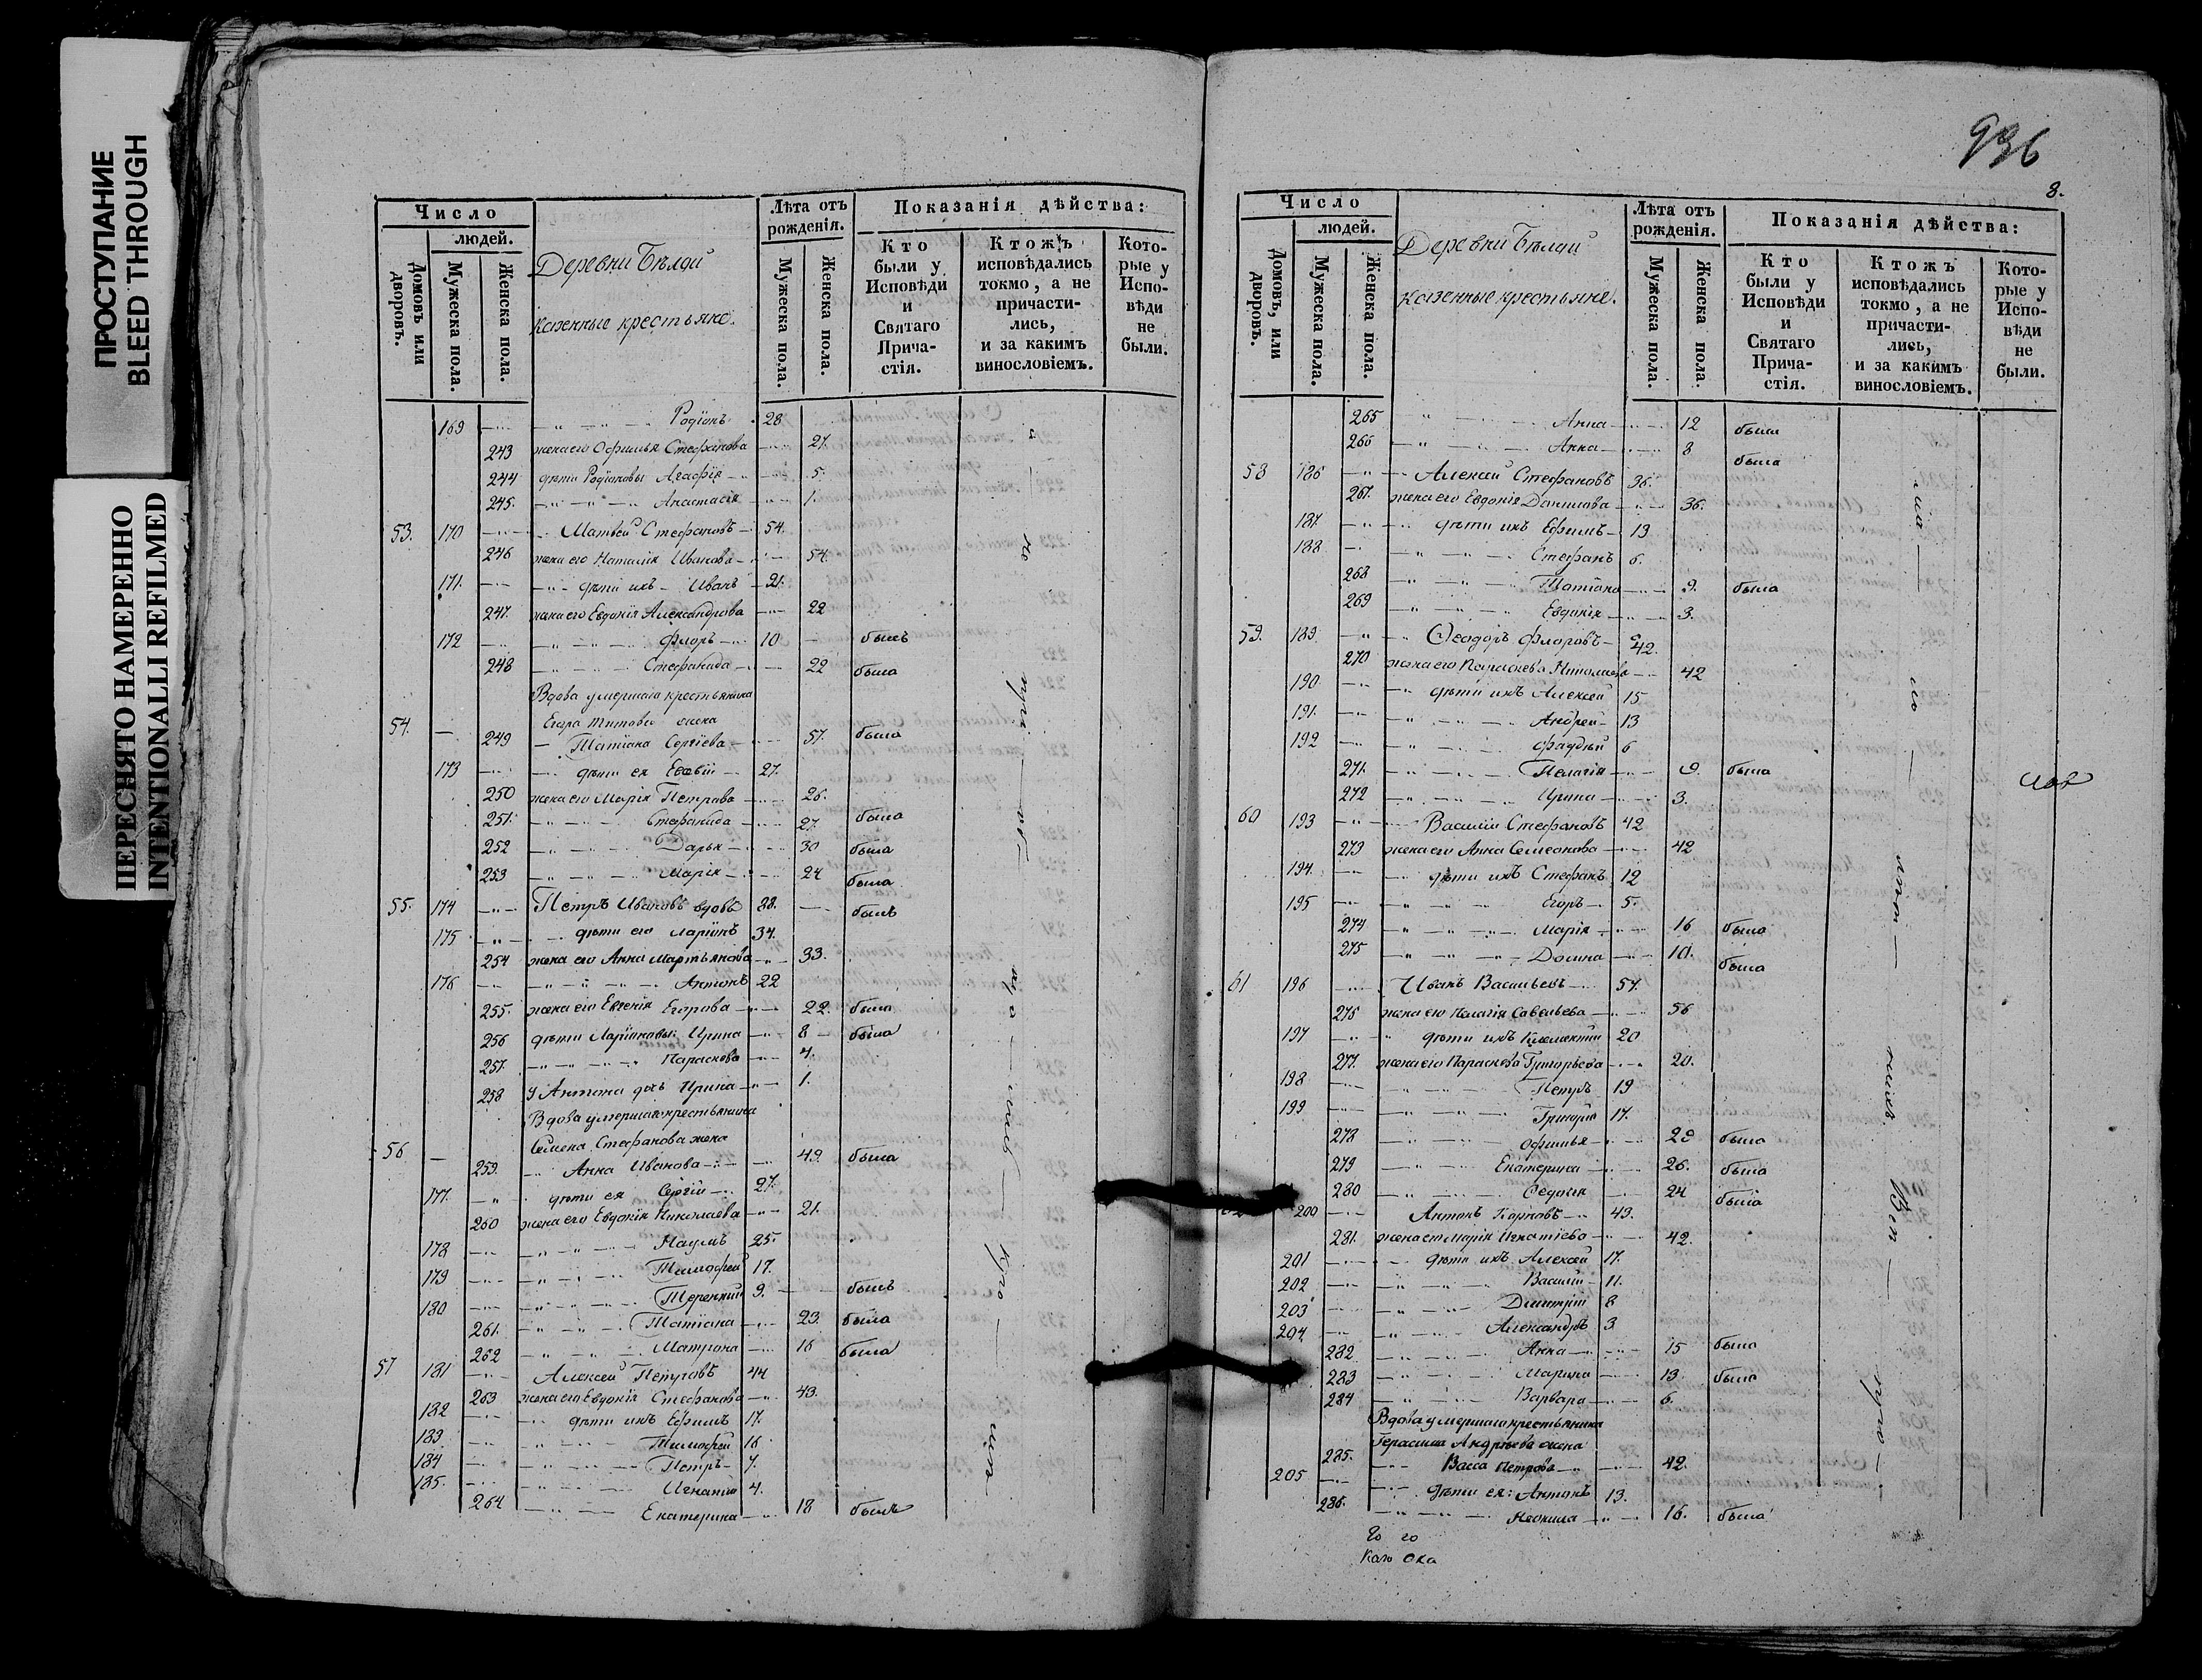 ПРОСТУПАНИЕ
BLEED THROUGH
ПЕРЕСНЯТО НАМЕРЕННО
INTENTIONALLI REFILMED
Число
людей.
Домовъ или дворовъ.
Мужеска пола.
Женска пола.
Деревни Бѣлой
казенные крестьяне.
Лѣта отъ рожденія.
Мужеска пола.
Женска пола.
Показанія дѣйства:
Кто были у Исповѣди и Святаго Прича-стія.
Ктожъ исповѣдались токмо, а не причасти-лись, и за какимъ винословіемъ.
Кото-рые у Испо-вѣди не были.
169 Родіонъ 28
243 жена его Офимья Стефанова 27.
244 дѣти Родіоновы Агафія 5.
245. Анастасія 1.
53. 170 Матвей Стефановъ 54.
246 жена его Наталія Иванова 54.
171. дѣти ихъ Иванъ 21.
247. жена его Евдокія Александрова 22
172 Флоръ 10 былъ
248 Стефанида 22 была
Вдова умершаго крестьянина
Егора Титова жена
54. 249 Татіана Сергіева 57. была
173 дѣти ея 27.
250 жена его Марія Петрова 26.
251. Стефанида 27. была
252 Дарья 30 была
253 Марія 24 была
55. 174 Петръ Ивановъ вдовъ 88. былъ
175 дѣти его Ларіонъ 34.
254 жена его Анна Мартьянова 33.
176 Антонъ 22
255. жена его Евгенія Егорова 22. была
256 дѣти Ларіоновы: Ирина 8 была
257. Параскева 4.
258 У Антона дочь Ирина 1.
Вдова умершаго крестьянина
Семена Стефанова жена
56 259. Анна Иванова 49. была
177. дѣти ея Сергій 27.
260 жена его Евдокія Николаева 21.
178 Наумъ 25.
179 Тимофей 17.
180 Терентій 9. былъ
261. Татіана 23. была
262 Матрона 16 была
57 181 Алексей Петровъ 44
263 жена его Евдокія Стефанова 43.
182 дѣти ихъ Ефимъ 17.
183 Тимофей 16
184 Петръ 7.
185. Игнатій 4.
264 Екатерина 18 была
936
8.
Число
людей.
Домовъ, или дворовъ.
Мужеска пола.
Женска пола.
Деревни Бѣлой
казенные крестьяне.
Лѣта отъ рожденія.
Мужеска пола.
Женска пола.
Показанія дѣйства:
Кто были у Исповѣди и Святаго Прича-стія.
Ктожъ исповѣдались токмо, а не причасти-лись, и за какимъ винословіемъ.
Кото-рые у Испо-вѣди не были.
265 Анна 12 была
266 Анна 8 была
58 186 Алексей Стефановъ 36.
267. жена его Евдокія Данилова 36.
187. дѣти ихъ Ефимъ 13
188 Стефанъ 6.
268 Татіана 9. была
269 Евдокія 3.
59. 189. Ѳеодоръ Флоровъ 42.
270 жена его Параскева Николаева 42
190 дѣти ихъ Алексей 15
191. Андрей 13
192 Фаддей 6
271. Пелагія 9. была
272 Ирина 3.
60 193 Василій Стефановъ 42
273 жена его Анна Семеонова 42
194. дѣти ихъ Стефанъ 12
195 Егоръ 5.
274 Марія 16 была
275 Домна 10. была
61 196 Иванъ Васильевъ 57.
276 жена его Пелагія Савельева 56
197 дѣти ихъ 20
277. жена его Параскева Григорьева 20.
198 Петръ 19
199 Григорій 17.
278 Офимья 29 была
279 Екатерина 26. была
280 Ѳедосія 24 была
200 Антонъ 49.
281. жена его Марія Игнатіева 42.
201 дѣти ихъ Алексей 17.
202 Василій 11.
203 Димитрій 8
204 Александръ 3
282 Анна 15 была
283 Марина 13. была
284 Варвара 6.
Вдова умершаго крестьянина
Герасима Андреева жена
285. Васса Петрова 42.
205 дѣти ея: Антонъ 13.
286. Неонила 16. была